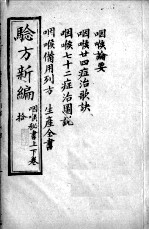 咽喉論要
咽喉廿四症治歌訣
咽喉七十二症治圖説
咽喉備用列方 生産全書
驗方新編
咽喉秘書上下卷
拾